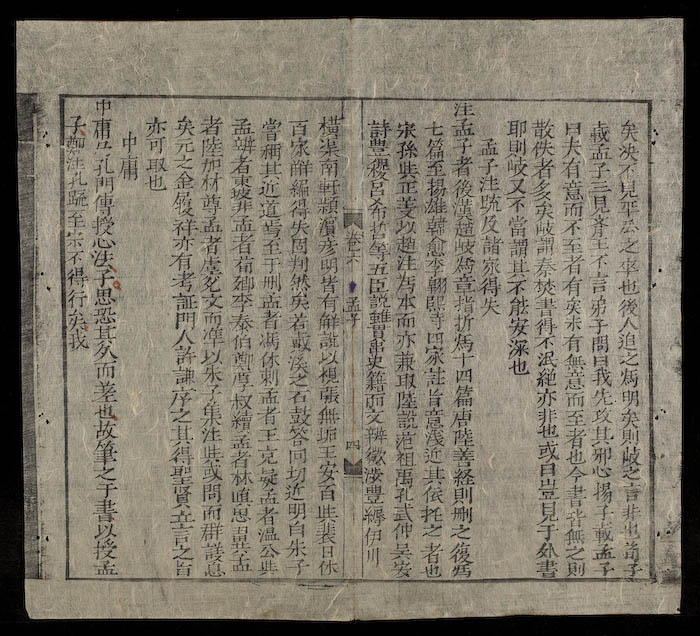 矣决不見平公之卒也後人追之爲明矣則岐之言非也荀子
載孟子三見齊王不言弟子問曰我先攻其邪心揚子載孟子
曰夫有意而不至者有矣未有無意而至者也今書皆無之則
散佚者多矣岐謂秦焚書得不泯絶亦非也或曰豈見于外書
耶則岐又不當謂其不能宏深也
孟子注疏及諸家得失
注孟子者後漢趙岐爲章指折爲十四篇唐陸善經則刪之復爲
七篇至揚雄韓愈李翺熙時四家註旨意淺近其依托之者也
宋孫奭正義以趙注爲本而亦兼取陸說范祖禹孔武仲吳安
詩豐稷呂希哲等五臣説雖貫串史籍而文辨徵汝豐縟伊川
卷六 孟子 四
横渠南軒潁濱彦明皆有解說以視張無垢王安石與裴日休
百家雜編得失固判然矣若戴溪之石鼓答問切近明白朱子
當稱其近道焉至于刪孟者馮休刺孟者王充疑孟者温公與
孟辨者東坡非孟者荀卿李泰伯鄭厚叔續孟者林慎思異孟
者陸加材尊孟者虞允文而準以朱子集注與或問而群議息
矣元之金履祥亦有考証門人許謙序之其得聖賢立言之旨
亦可取也
中庸
中庸乃孔門傳授心法子思恐其久而差也故筆之于書以授孟
子鄭注孔疏至宋不得行矣我